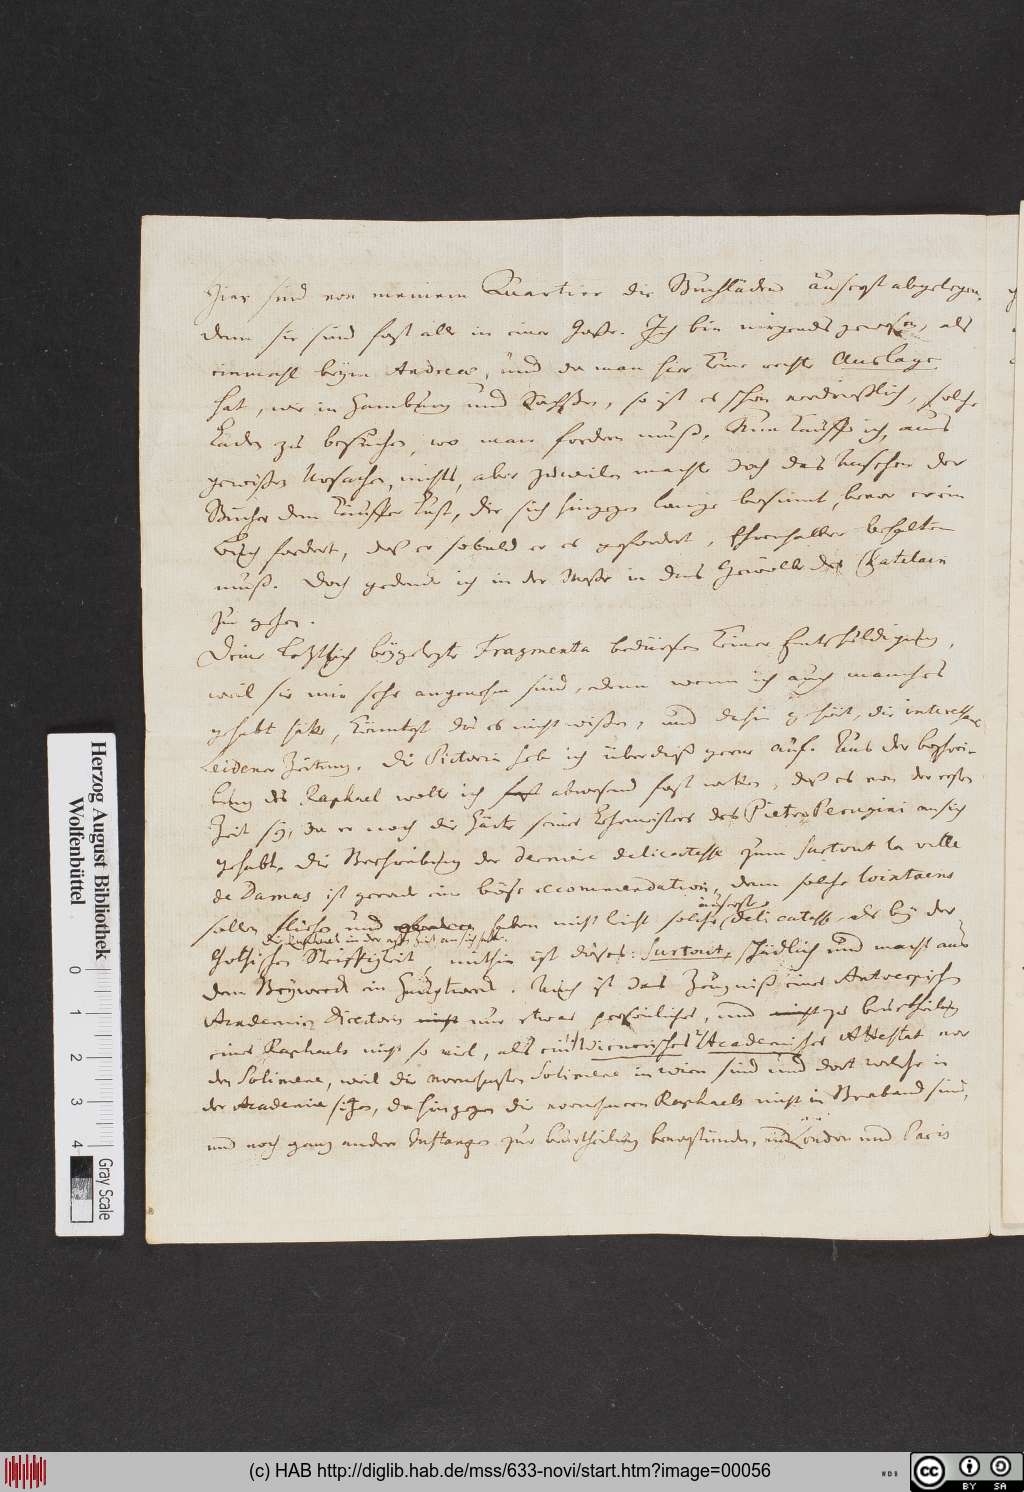 Hier sind von meinem Quartier die Buchläden äuserst abgelegen,
denn sie sind fast alle in einer Gasse. Ich bin nirgends gewesen, als
einmahl beym Andreæ, und da man hier keine rechte Auslage
hat, wie in Hamburg und Sachßen, so ist es schon verdrießlich, solche
Läden zu besuchen, wo man fordern muß. Nun kauffe ich, aus
gewißen Ursachen, nichts, aber zuweilen macht doch das Ansehen der
Bücher dem Käuffer Lust, der sich hingegen lange besinnt, bevor er ein
Buch fordert, daß er sobald er es gefordert, Ehrenhalber behalten
muß. Doch gedencke ich in der Meße in das Gewölbe des Chatelain
zu gehen.
Deine letztlich beygelegte Fragmenta bedürfen keiner Entschuldigung,
weil sie mir sehr angenehm sind, denn wenn ich auch manches
gehabt hätte, könntest du es nicht wißen, und dahin gehört, die interessante
Leidener Zeitung. Die Pictoria hebe ich überdieß gerne auf. Aus der beschrei-
bung des Raphael wolte ich fast abwesend fast wetten, daß es von der ersten
Zeit sey, da er noch die Härte seines Lehrmeisters des Pietro Perugini an sich
gehabt. Die Beschreibung der derniere delicatesse zum surtout la ville
de Damas ist gerade eine böse recommendation, denn solche lointains
sollen haben nicht leicht solche äuserste delicatesse als bey der
Gothischen Steiffigkeit mithin ist dieses: surtout, schädlich und macht aus
dem Beywerck ein Hauptwerck. Auch ist das Zeugniß eines Antwerpischen
Academie Directoris nicht nur etwas persönliches, und nicht zur beurtheilung
eines Raphaels nicht so viel, als ein Wienerisches Academisches Attestat von
den Solimene, weil die vornehmsten Solimene in Wien sind und dort welche in
der Academie sitzen, da hingegen die vornehmen Raphaels nicht in Braband sind,
und noch ganz andere Instanzen zur beurtheilung bevorstünden, und London und Paris
Herzog August Bibliothek
Wolfenbüttel
0 1 2 3 4
Gray Scale
(c) HAB http://diglib.hab.de/mss/633-novi/start.htm?image=00056
WDB
cc
BY SA